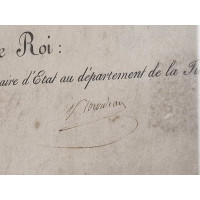 e Roi:
aire d'Etat au département de la